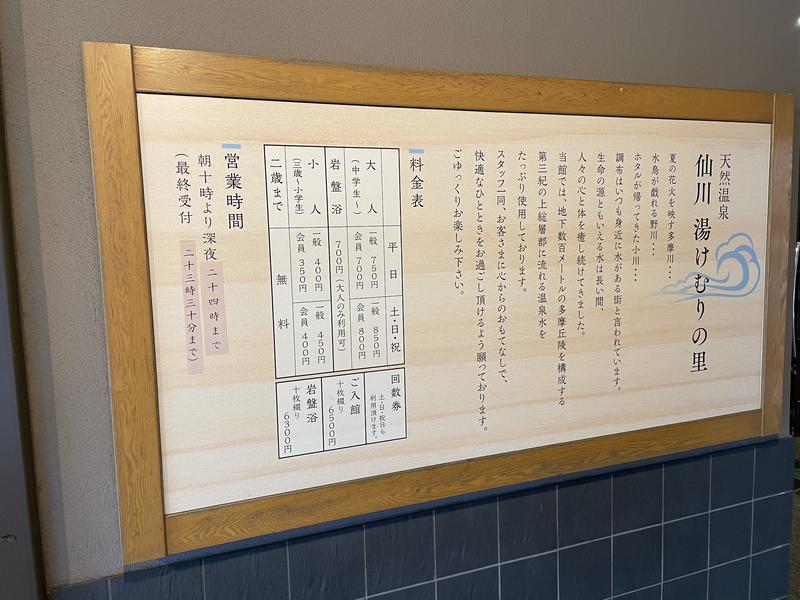 天然温泉
仙川 湯けむりの里
夏の花火を映す多摩川・・・
水鳥が戯れる野川・・・
ホタルが帰ってきた小川・・・
調布はいつも身近に水がある街と言われています。
生命の源ともいえる水は長い間、
人々の心と体を癒し続けてきました。
当館では、地下数百メートルの多摩丘陵を構成する
第三紀の上総層郡に流れる温泉水を
たっぷり使用しております。
スタッフ一同、お客さまに心からのおもてなしで、
快適なひとときをお過ごし頂けるよう願っております。
ごゆっくりお楽しみ下さい。
料金表
平日
土・日・祝
大人
(中学生〜)
一般 750円
会員 700円
一般 850円
会員 800円
岩盤浴
700円(大人のみ利用可)
小人
(三歳〜小学生)
一般 400円
会員 350円
一般 450円
会員 400円
二歳まで
無料
回数券
土・日・祝日も
利用頂けます。
ご入館
十枚綴り
6500円
岩盤浴
十枚綴り
6300円
営業時間
朝十時より深夜二十四時まで
(最終受付 二十三時三十分まで)